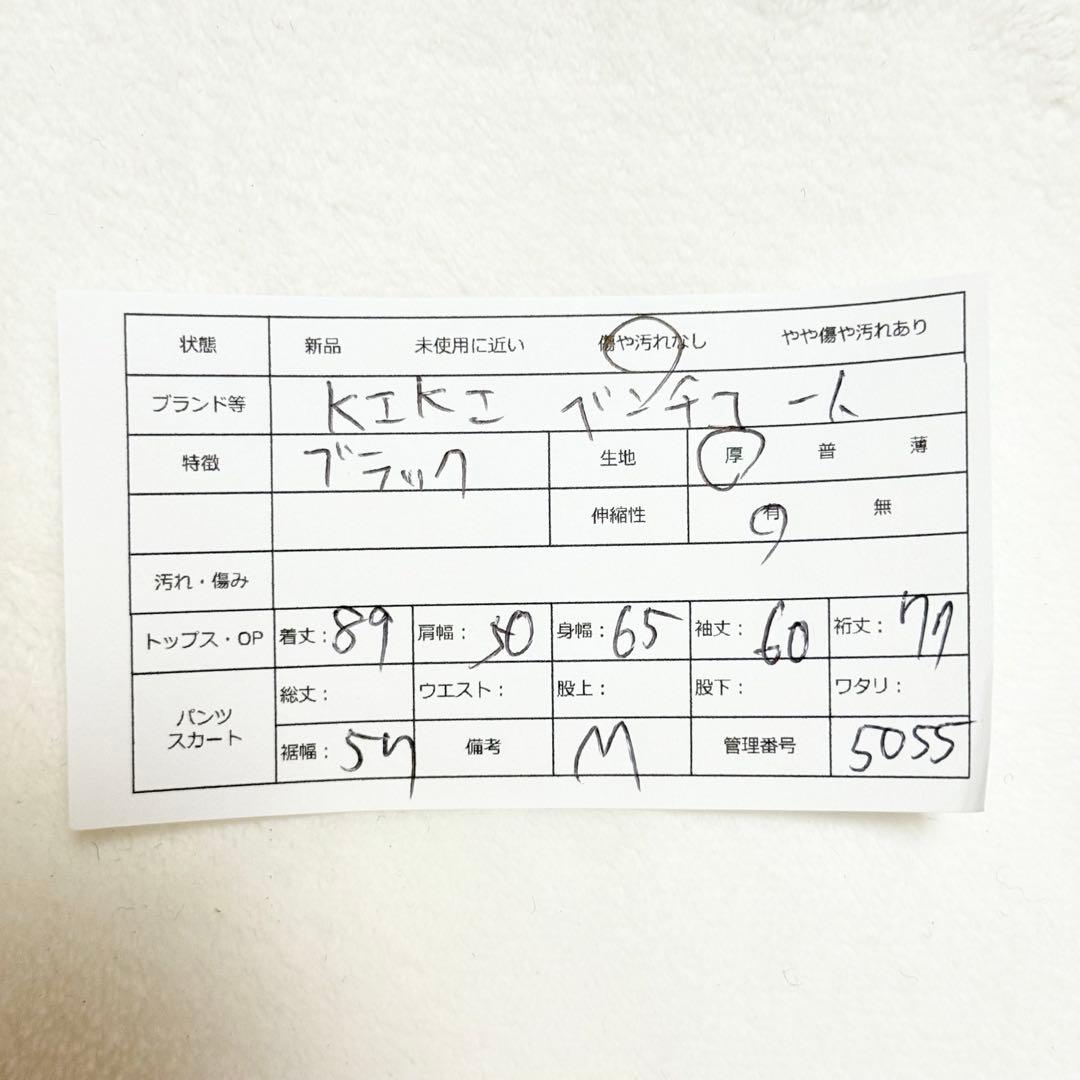 状態 新品 未使用に近い 傷や汚れなし やや傷や汚れあり
ブランド等 KIKI ベンチコート
特徴 ブラック 生地 厚 普 薄
伸縮性 有 無
汚れ・傷み
トップス・OP 着丈：89 肩幅：50 身幅：65 袖丈：60 裄丈：77
パンツ スカート 総丈： ウエスト： 股上： 股下： ワタリ：
裾幅：57 備考 M 管理番号 5055